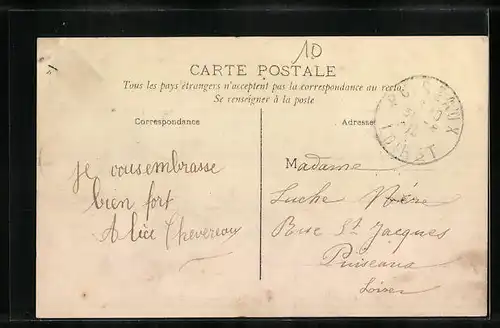 10
CARTE POSTALE
Tous les pays étrangers n'acceptent pas la correspondance au recto.
Se renseigner à la poste
Correspondance
Adresse
PUISEAUX
LOIRET
je vous embrasse
bien fort
Alice Chevereau
Madame
Luche
Rue St Jacques
Puiseaux
Loiret